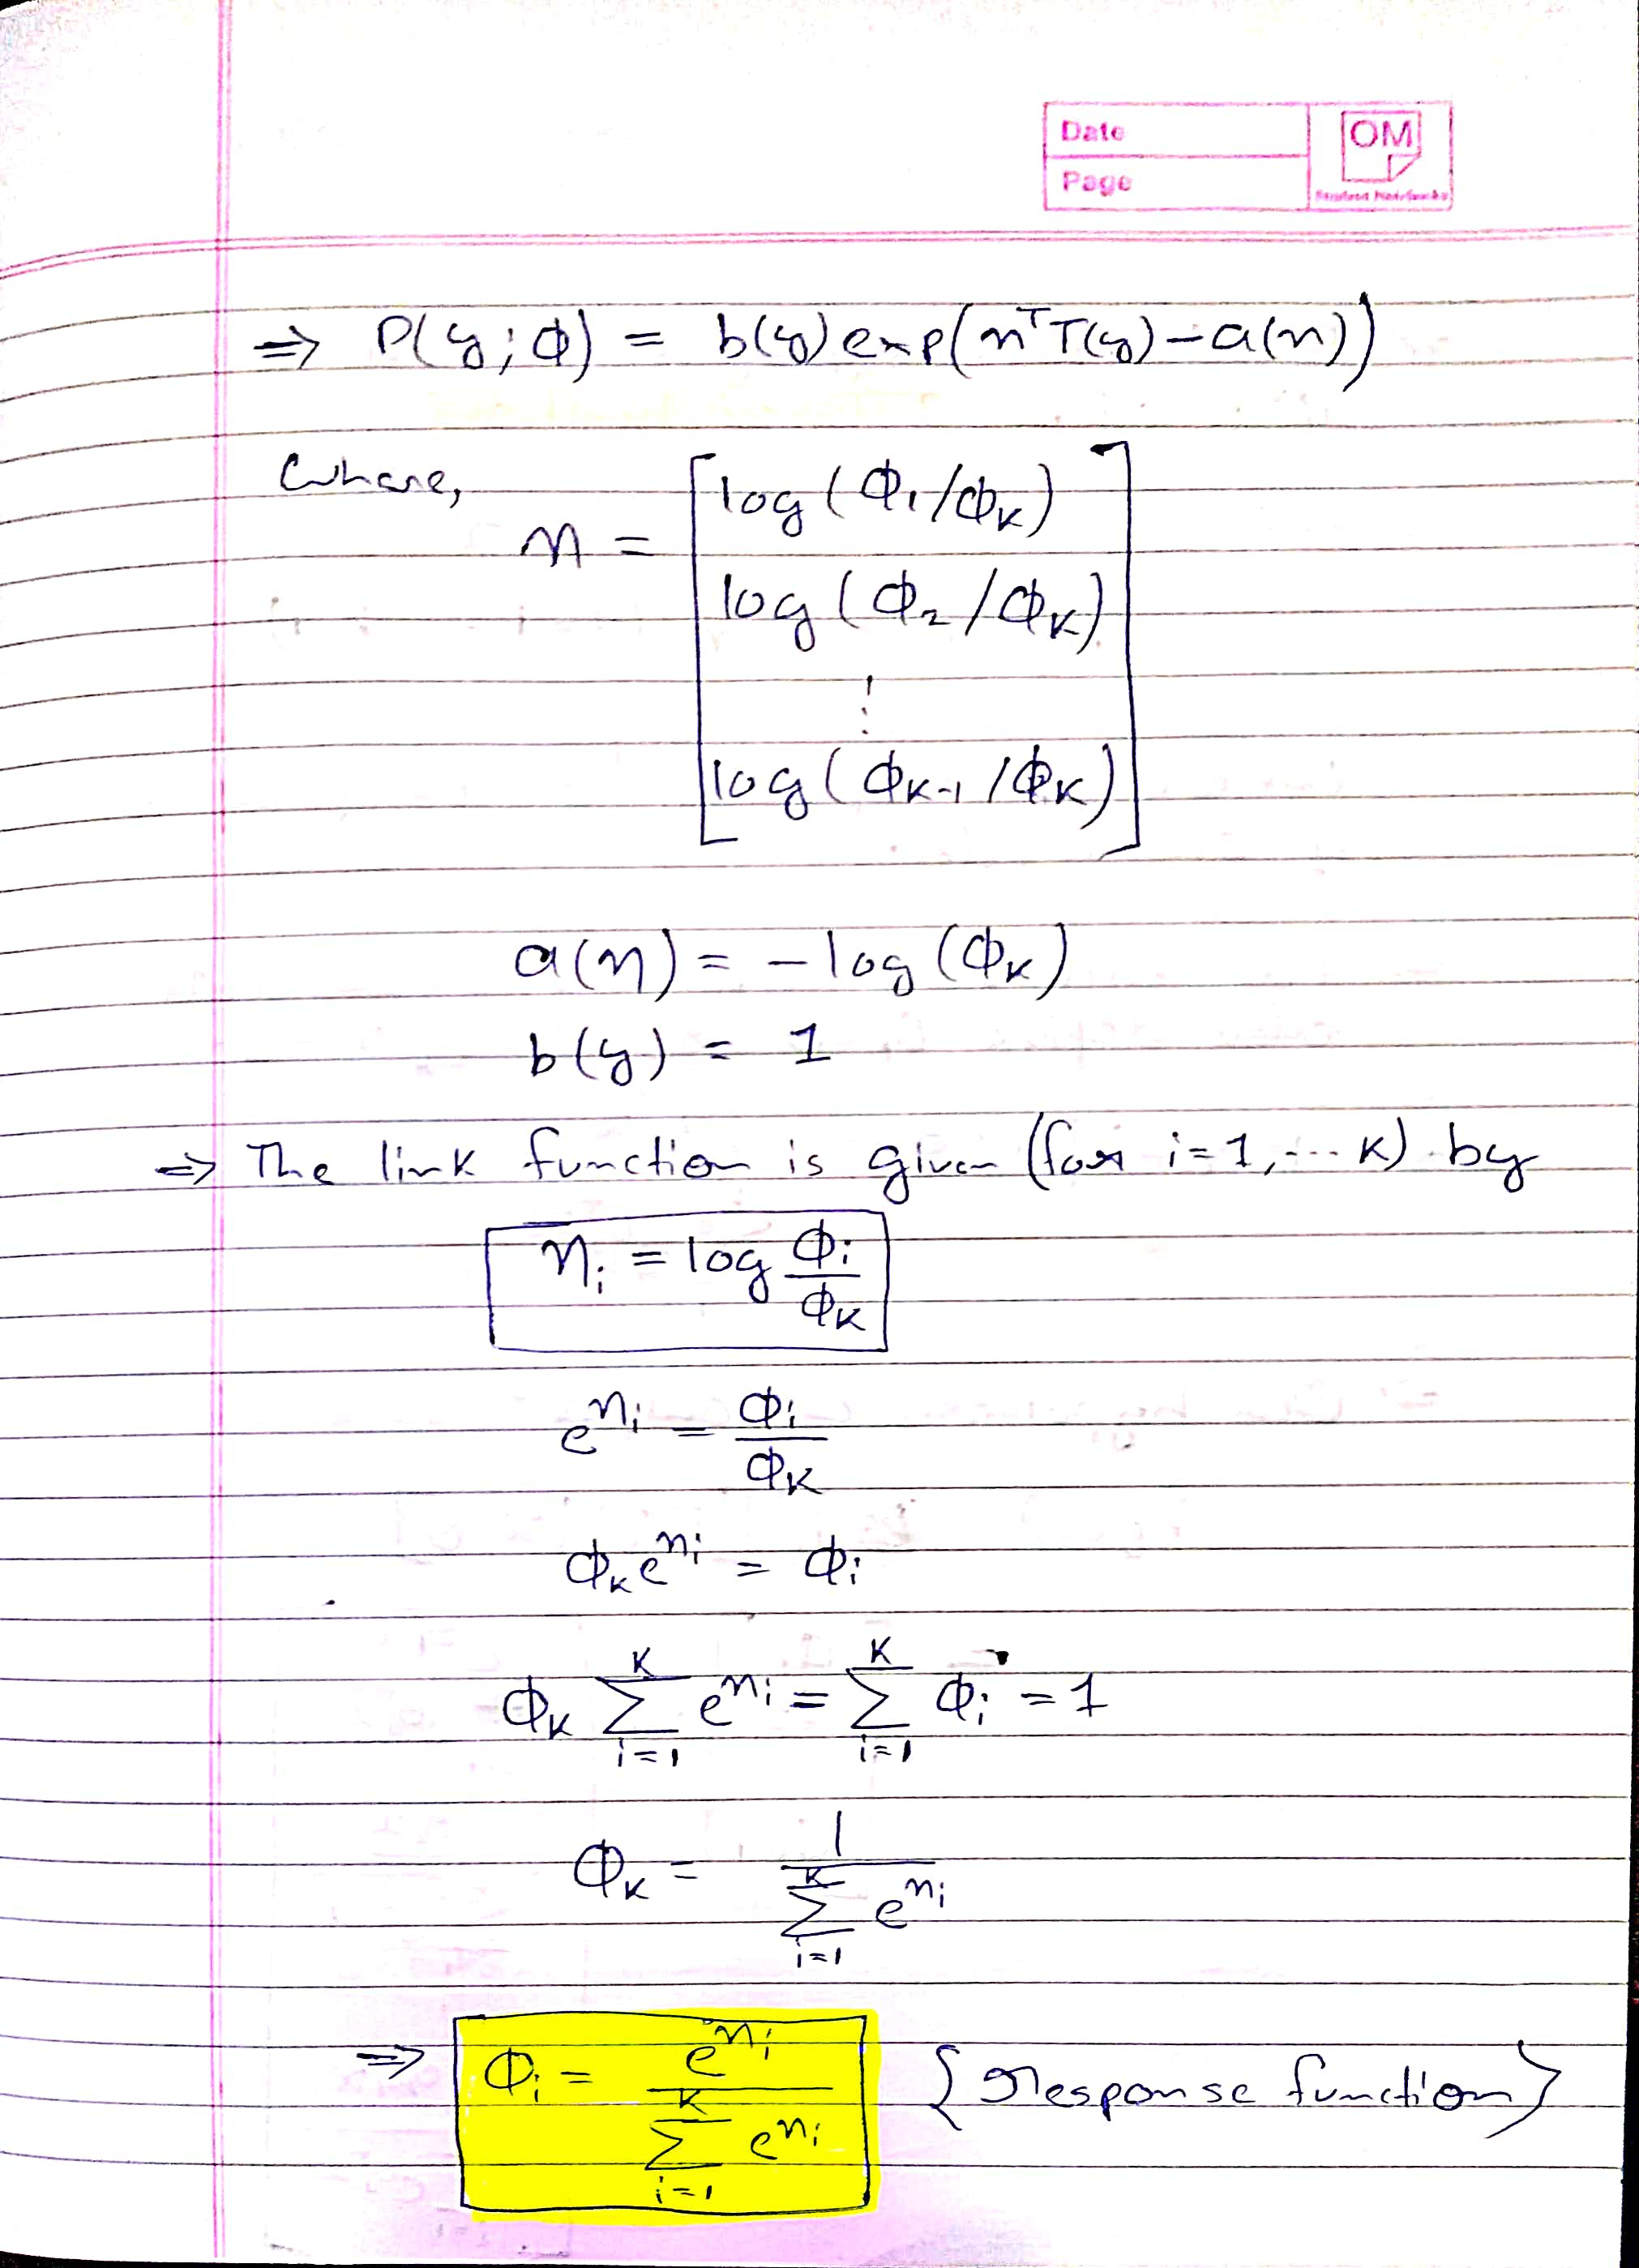 Date
OM
Page
⇒ P(y; φ) = b(y) exp(η^T T(y) − a(η))
where,
η = [ log(φ₁/φ_K)
log(φ₂/φ_K)
⋮
log(φ_{K-1}/φ_K) ]
a(η) = − log(φ_K)
b(y) = 1
⇒ The link function is given (for i=1, ... K) by
η_i = log φ_i / φ_K
e^{η_i} = φ_i / φ_K
φ_K e^{η_i} = φ_i
φ_K Σ_{i=1}^{K} e^{η_i} = Σ_{i=1}^{K} φ_i = 1
φ_K = 1 / Σ_{i=1}^{K} e^{η_i}
⇒ φ_i = e^{η_i} / Σ_{i=1}^{K} e^{η_i} {response function}